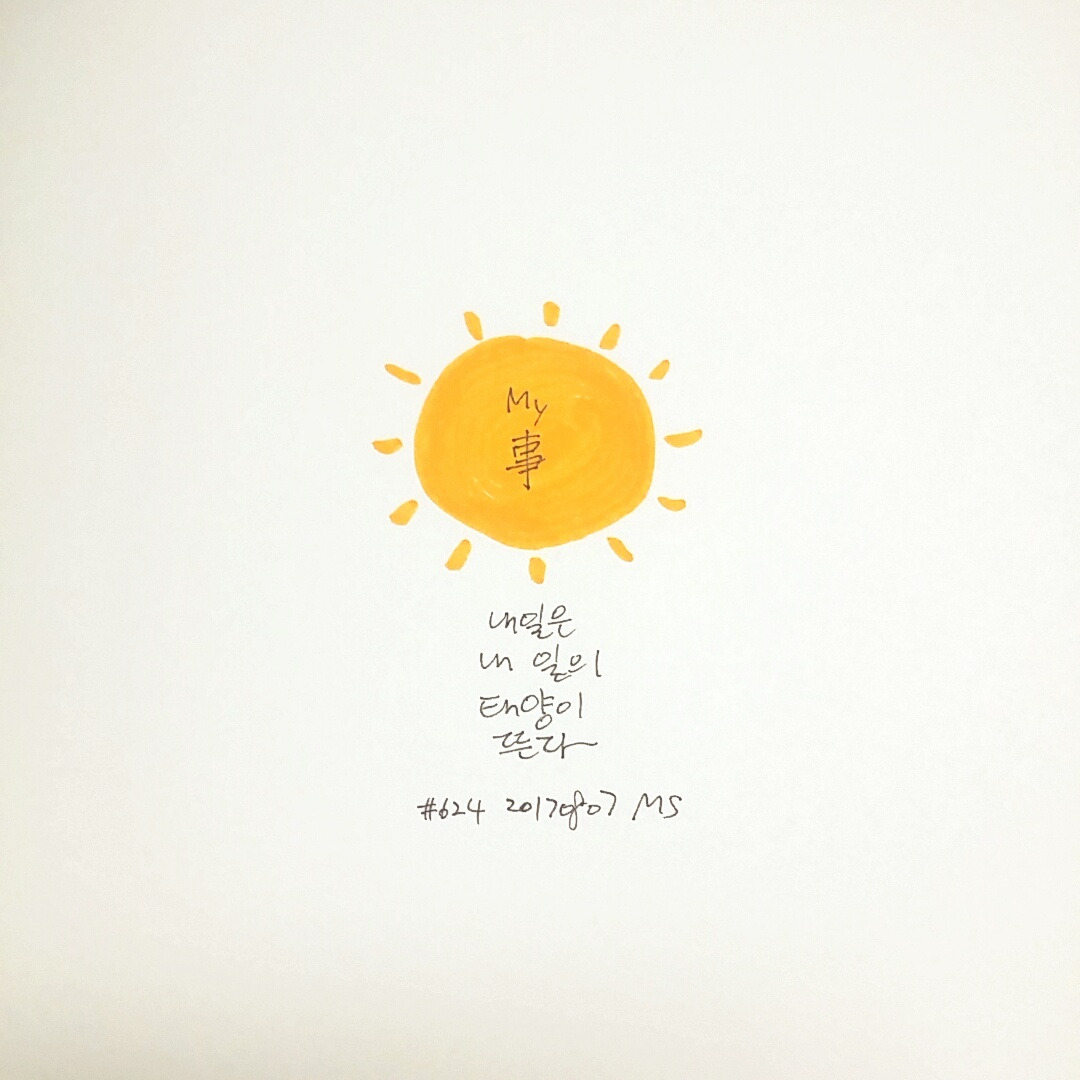 My
事
내일은
내 일의
태양이
뜬다
#624 20170807 MS